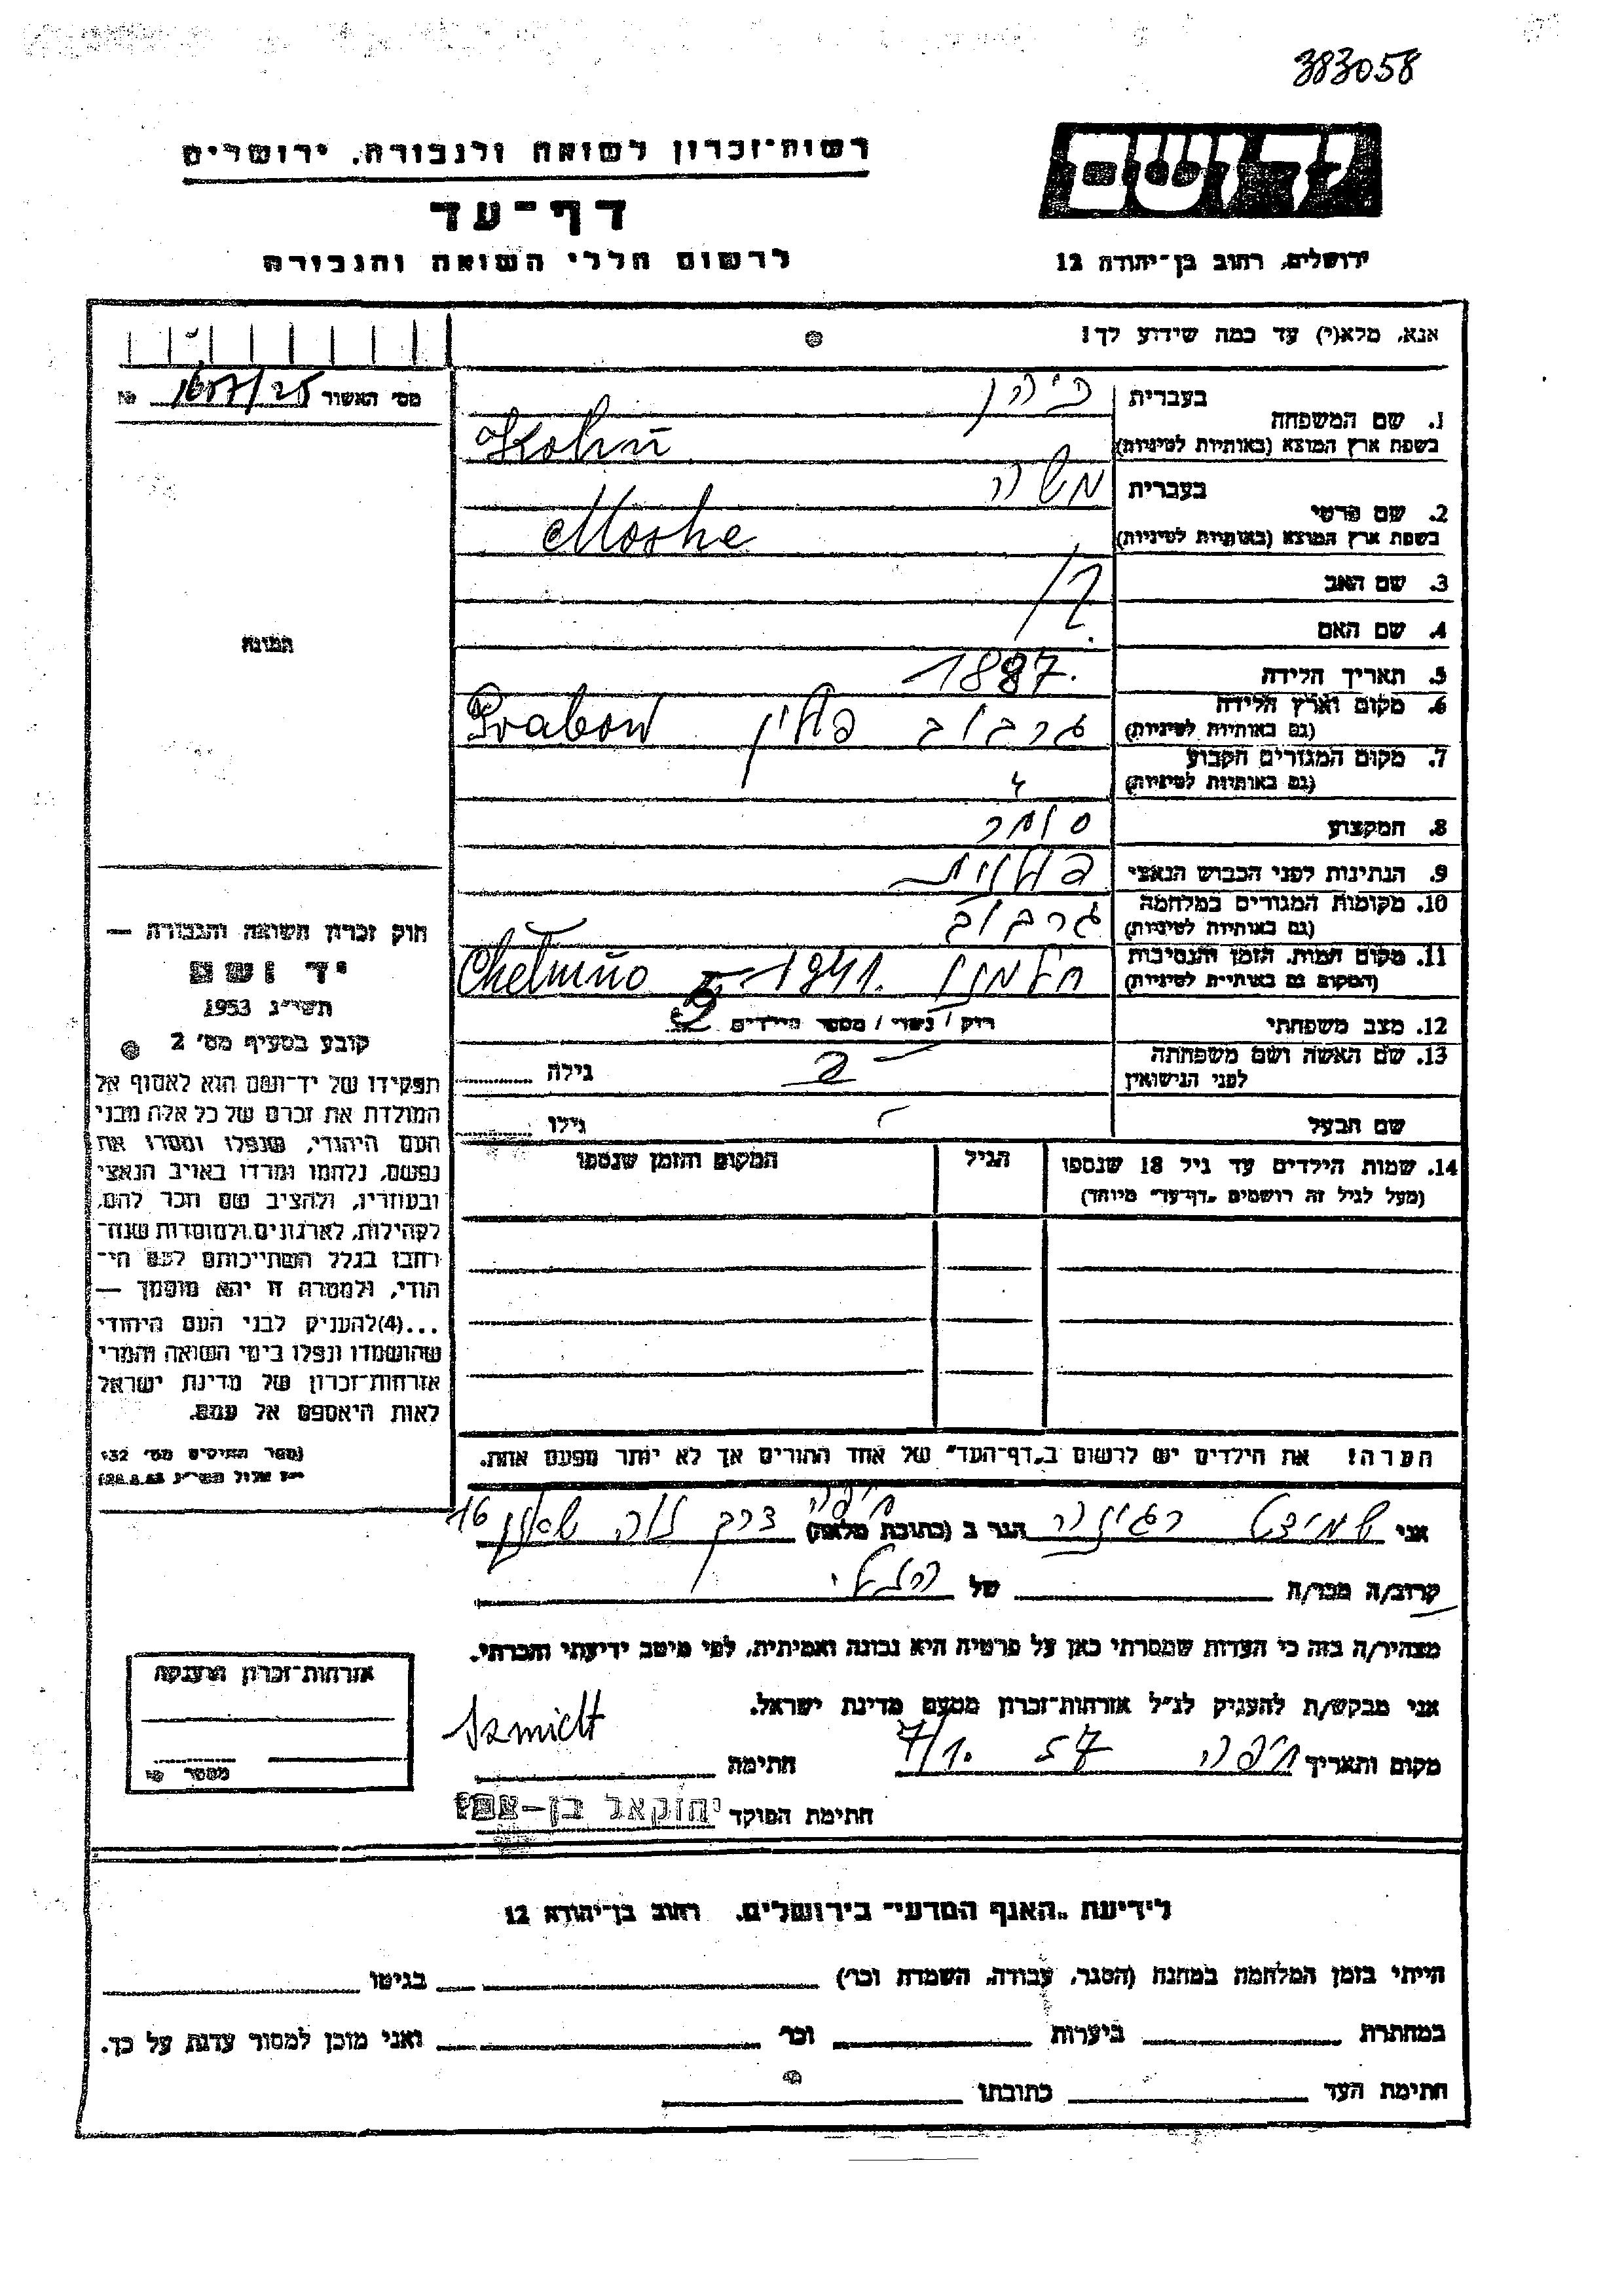 383058
יד ושם
רשות־זכרון לשואה ולגבורה, ירושלים
דף־עד
לרשום חללי השואה והגבורה
ירושלים, רחוב בן־יהודה 12
אנא, מלא(י) עד כמה שידוע לך!
מס׳ האשור 1607/25 №
1. שם המשפחה
בעברית
בשפת ארץ המוצא (באותיות לטיניות) Kohn
2. שם פרטי
בעברית משה
בשפת ארץ המוצא (באותיות לטיניות) Moshe
3. שם האב
4. שם האם
5. תאריך הלידה 1887.
6. מקום וארץ הלידה גרבוב פולין Grabow
(גם באותיות לטיניות)
7. מקום המגורים הקבוע
(גם באותיות לטיניות)
8. המקצוע סוחר
9. הנתינות לפני הכבוש הנאצי פולנית
10. מקומות המגורים במלחמה גרבוב
(גם באותיות לטיניות)
11. מקום המות, הזמן והנסיבות חלמנו 1941. Chełmno
(המקום גם באותיות לטיניות)
12. מצב משפחתי רוק / נשוי / מספר הילדים
13. שם האשה ושם משפחתה
לפני הנישואין
גילה
שם הבעל
גילו
14. שמות הילדים עד גיל 18 שנספו
(מעל לגיל זה רושמים „דף־עד״ מיוחד)
הגיל
המקום והזמן שנספו
הערה! את הילדים יש לרשום ב„דף־העד״ של אחד ההורים אך לא יותר מפעם אחת.
תמונה
חוק זכרון השואה והגבורה —
יד ושם
תשי״ג 1953
קובע בסעיף מס׳ 2
תפקידו של יד־ושם הוא לאסוף אל
המולדת את זכרם של כל אלה מבני
העם היהודי, שנפלו ומסרו את
נפשם, נלחמו ומרדו באויב הנאצי
ובעוזריו, ולהציב שם וזכר להם,
לקהילות, לארגונים ולמוסדות שנח־
רבו בגלל השתייכותם לעם הי־
הודי, ולמטרה זו יהא מוסמך —
...(4) להעניק לבני העם היהודי
שהושמדו ונפלו בימי השואה והמרי
אזרחות־זכרון של מדינת ישראל
לאות היאספם אל עמם.
(ספר החוקים מס׳ 132
אני שמידט רגינה הגר ב (כתובת מלאה) חיפה דרך נוה שאנן 16
קרוב/ה מכר/ה של
מצהיר/ה בזה כי העדות שמסרתי כאן על פרטיה היא נכונה ואמיתית, לפי מיטב ידיעתי והכרתי.
אני מבקש/ת להעניק לנ״ל אזרחות־זכרון מטעם מדינת ישראל.
מקום ותאריך חיפה 7/1. 57 חתימה Szmidt
חתימת הפוקד יחזקאל בן־
אזרחות־זכרון הוענקה
מספר
לידיעת „האגף המדעי״ בירושלים, רחוב בן־יהודה 12
הייתי בזמן המלחמה במחנה (הסגר, עבודה, השמדה וכו׳) בגיטו
במחתרת ביערות וכו׳ ואני מוכן למסור עדות על כך.
חתימת העד כתובתו